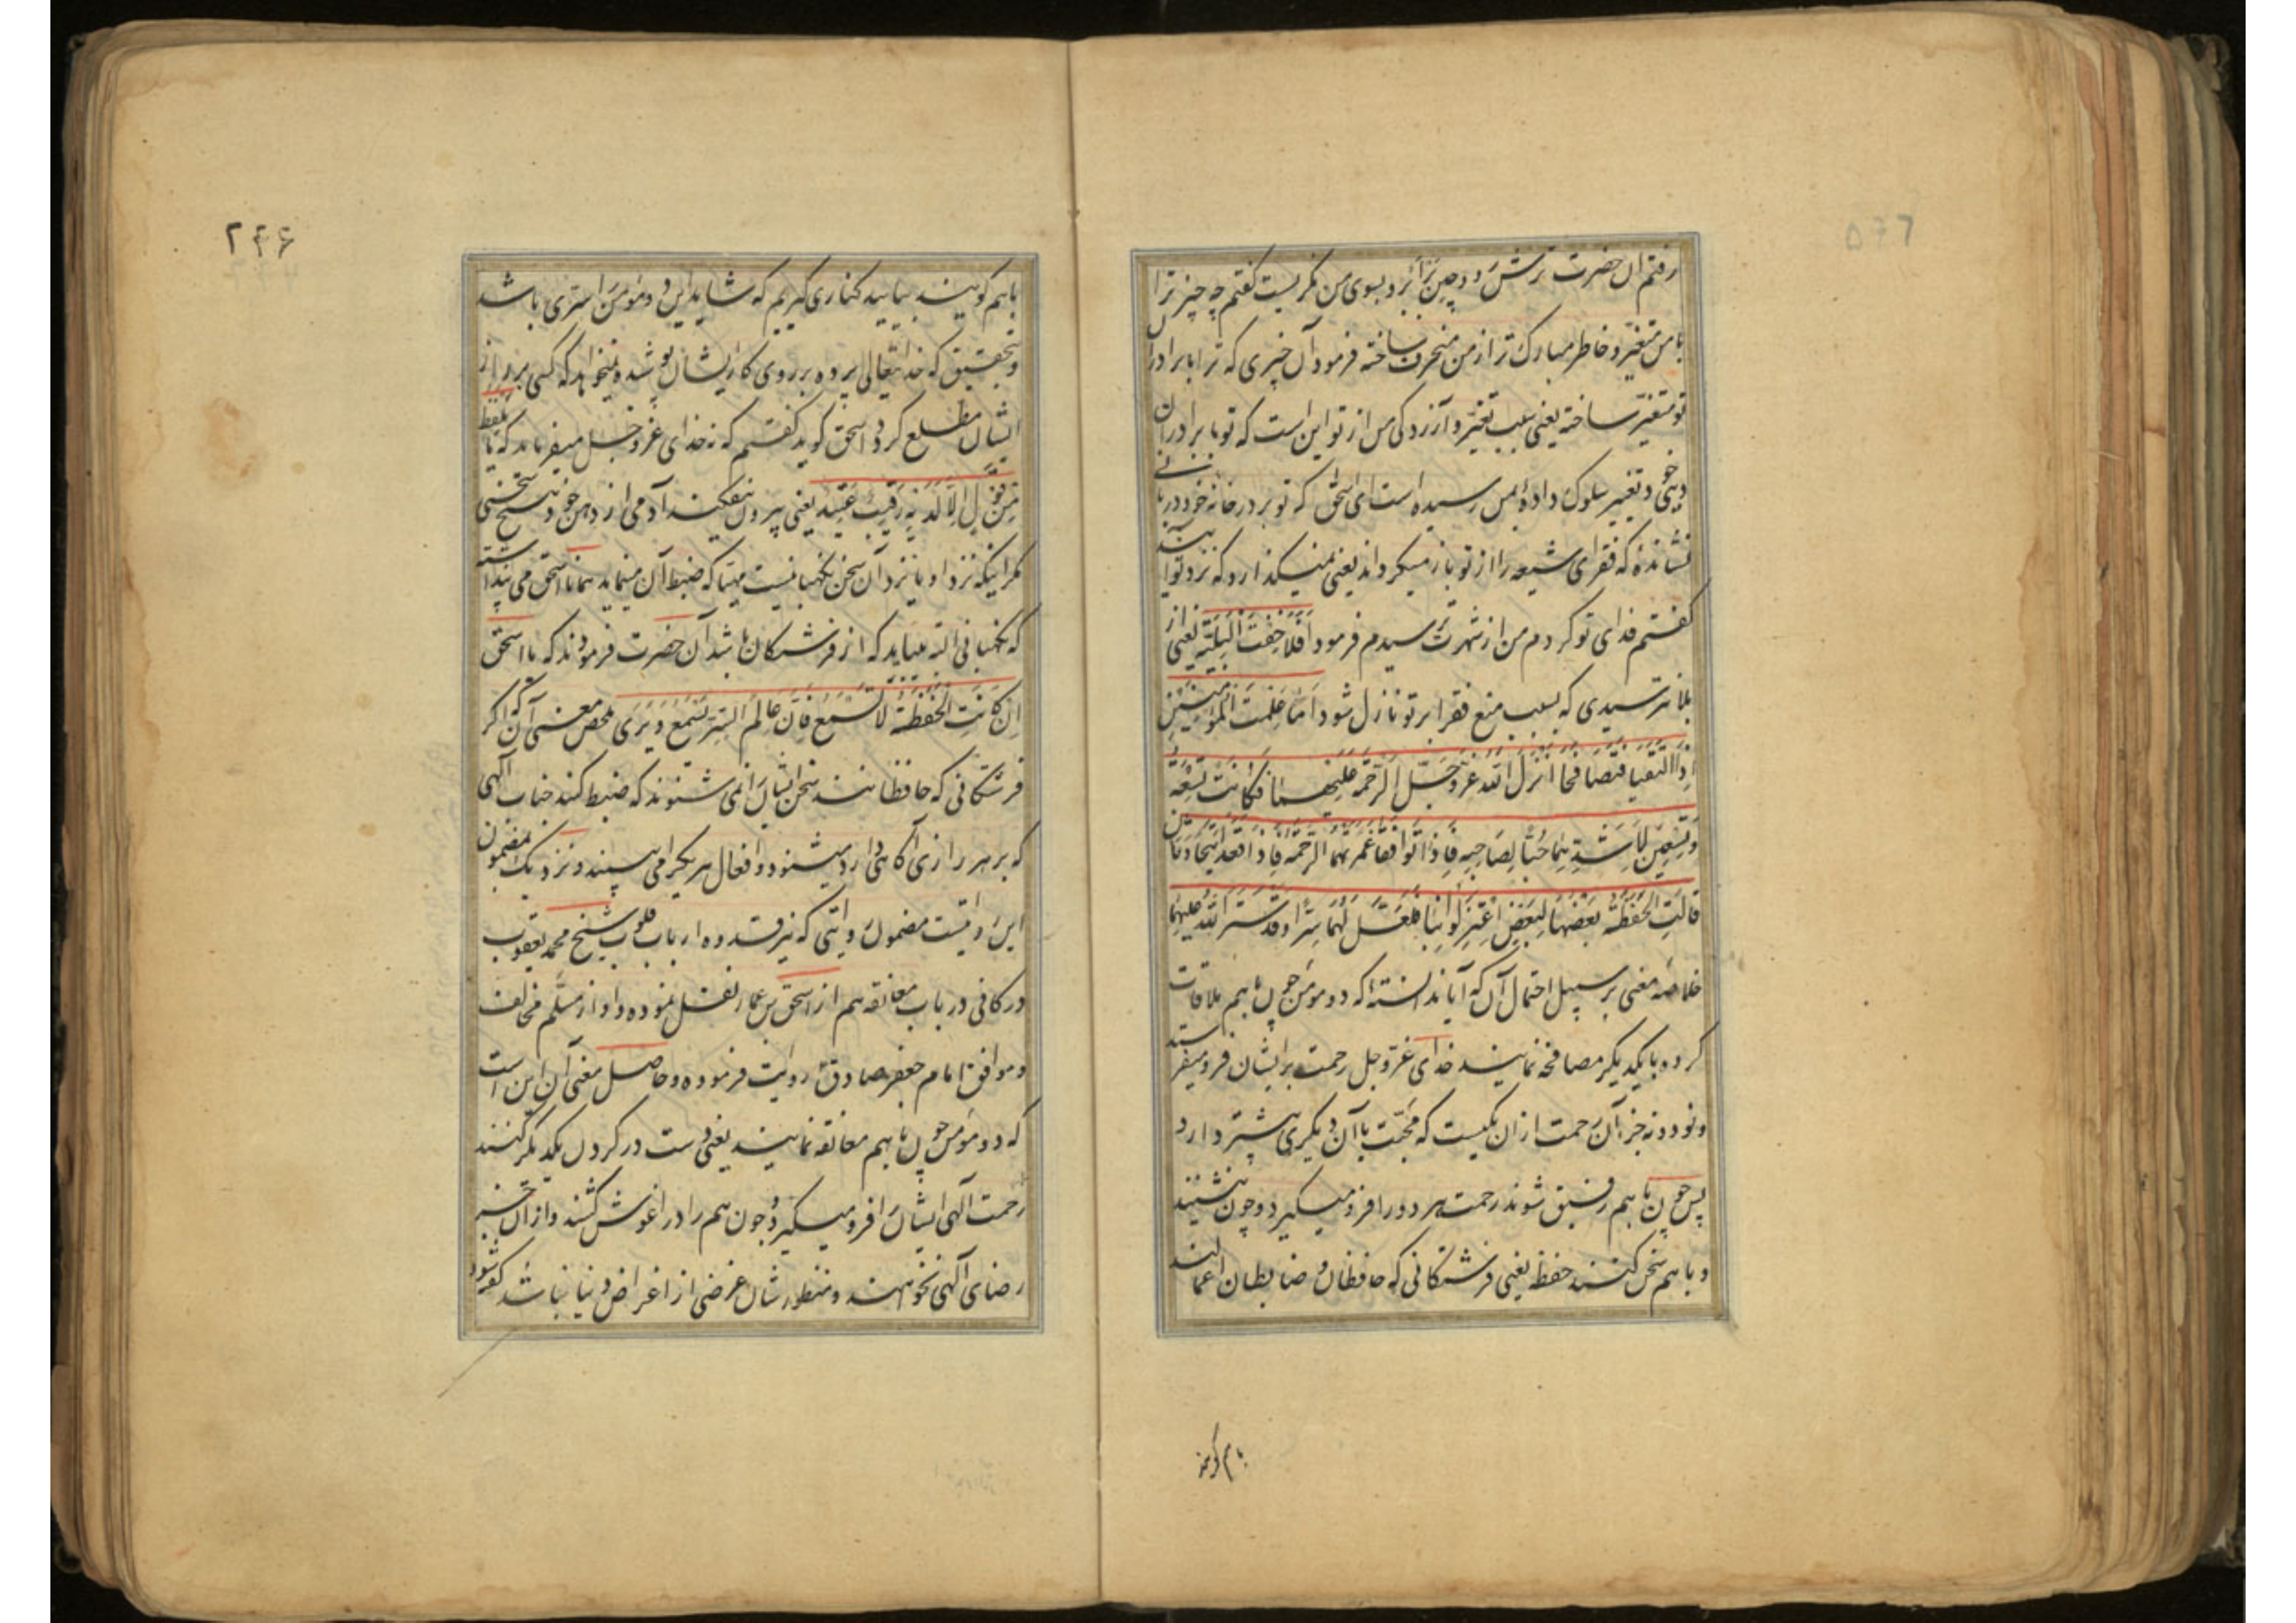 رفتم آن حضرت ترش رو و چین بر ابرو بسوی من نگریست گفتم چه چیز ترا
با من متغیر و خاطر مبارک ترا از من منحرف ساخته فرمود آن چیزی که ترا با برادران
تو متغیر ساخته یعنی سبب تغیر و آزردگی من از تو این است که تو با برادران
و تغییر سلوک داده بمن رسیده است ای اسحق که تو بر در خانه خود دربانی
نشانده که فقرای شیعه را از تو باز میگرداند یعنی نمیگذارد که نزد تو آیند
گفتم فدای تو گردم من از شهرت ترسیدم فرمود افلا خفت البلیة یعنی از
بلا نترسیدی که بسبب منع فقرا بر تو نازل شود اما علمت ان المؤمنین
اذا التقیا فتصافحا انزل الله عز و جل الرحمة علیهما فکانت تسعة
و تسعین لاشدهما حبا لصاحبه فاذا توافقا غمرتهما الرحمة فاذا قعدا یتحادثان
قالت الحفظة بعضها لبعض اعتزلوا بنا فلعل لهما سرا و قد ستر الله علیهما
خلاصه معنی بر سبیل احتمال آن که آیا ندانسته که دو مومن چون باهم ملاقات
کرده با یکدیگر مصافحه نمایند خدای عز و جل رحمت بر ایشان فرو میفرستد
و نود و نه جزء آن رحمت از ان یکیست که محبت با آن دیگری بیشتر دارد
پس چون باهم رفیق شوند رحمت هر دو را فرو میگیرد و چون بنشینند
و باهم سخن کنند حفظه یعنی فرشتگانی که حافظان و ضابطان اعمالند
باهم گویند
۲۴۶
باهم گویند بیایید کناری گیریم که شاید این دو مومن را سری باشد
و بتحقیق که خدایتعالی پرده بر روی کار ایشان پوشیده و نمیخواهد که کسی بر راز
ایشان مطلع گردد اسحق گوید گفتم که نه خدای عز و جل میفرماید که ما یلفظ
من قول الا لدیه رقیب عتید یعنی بیرون نیفکند آدمی از دهن خود هیچ سخنی
مگر اینکه نزد او یا نزد آن سخن نگهبانیست مهیا که ضبط آن مینماید همانا اسحق می پنداشته
که نگهبانی البته میباید که از فرشتگان باشد آن حضرت فرمودند که یا اسحق
ان کانت الحفظة لا تسمع فان عالم السر یسمع و یری ملخص معنی آن که اگر
فرشتگانی که حافظانند سخن ایشان را نمی شنوند که ضبط کنند جناب الهی
که بر هر رازی آگاهی دارد میشنود و افعال هر یک را می بیند و نزدیک بمضمون
این روایتست مضمون روایتی که نیز قدوه ارباب قلوب شیخ محمد یعقوب
در کافی در باب معانقه هم از اسحق بن عمار نقل نموده و او از مسلم مخالف
و موافق امام جعفر صادق روایت فرموده و حاصل معنی آن این است
که دو مومن چون باهم معانقه نمایند یعنی دست در گردن یکدیگر کنند
رحمت الهی ایشان را فرو میگیرد و چون هم را در آغوش کشند و از آن جز
رضای الهی نخواهند و منظور شان غرضی از اغراض دنیا نباشد گفته شود